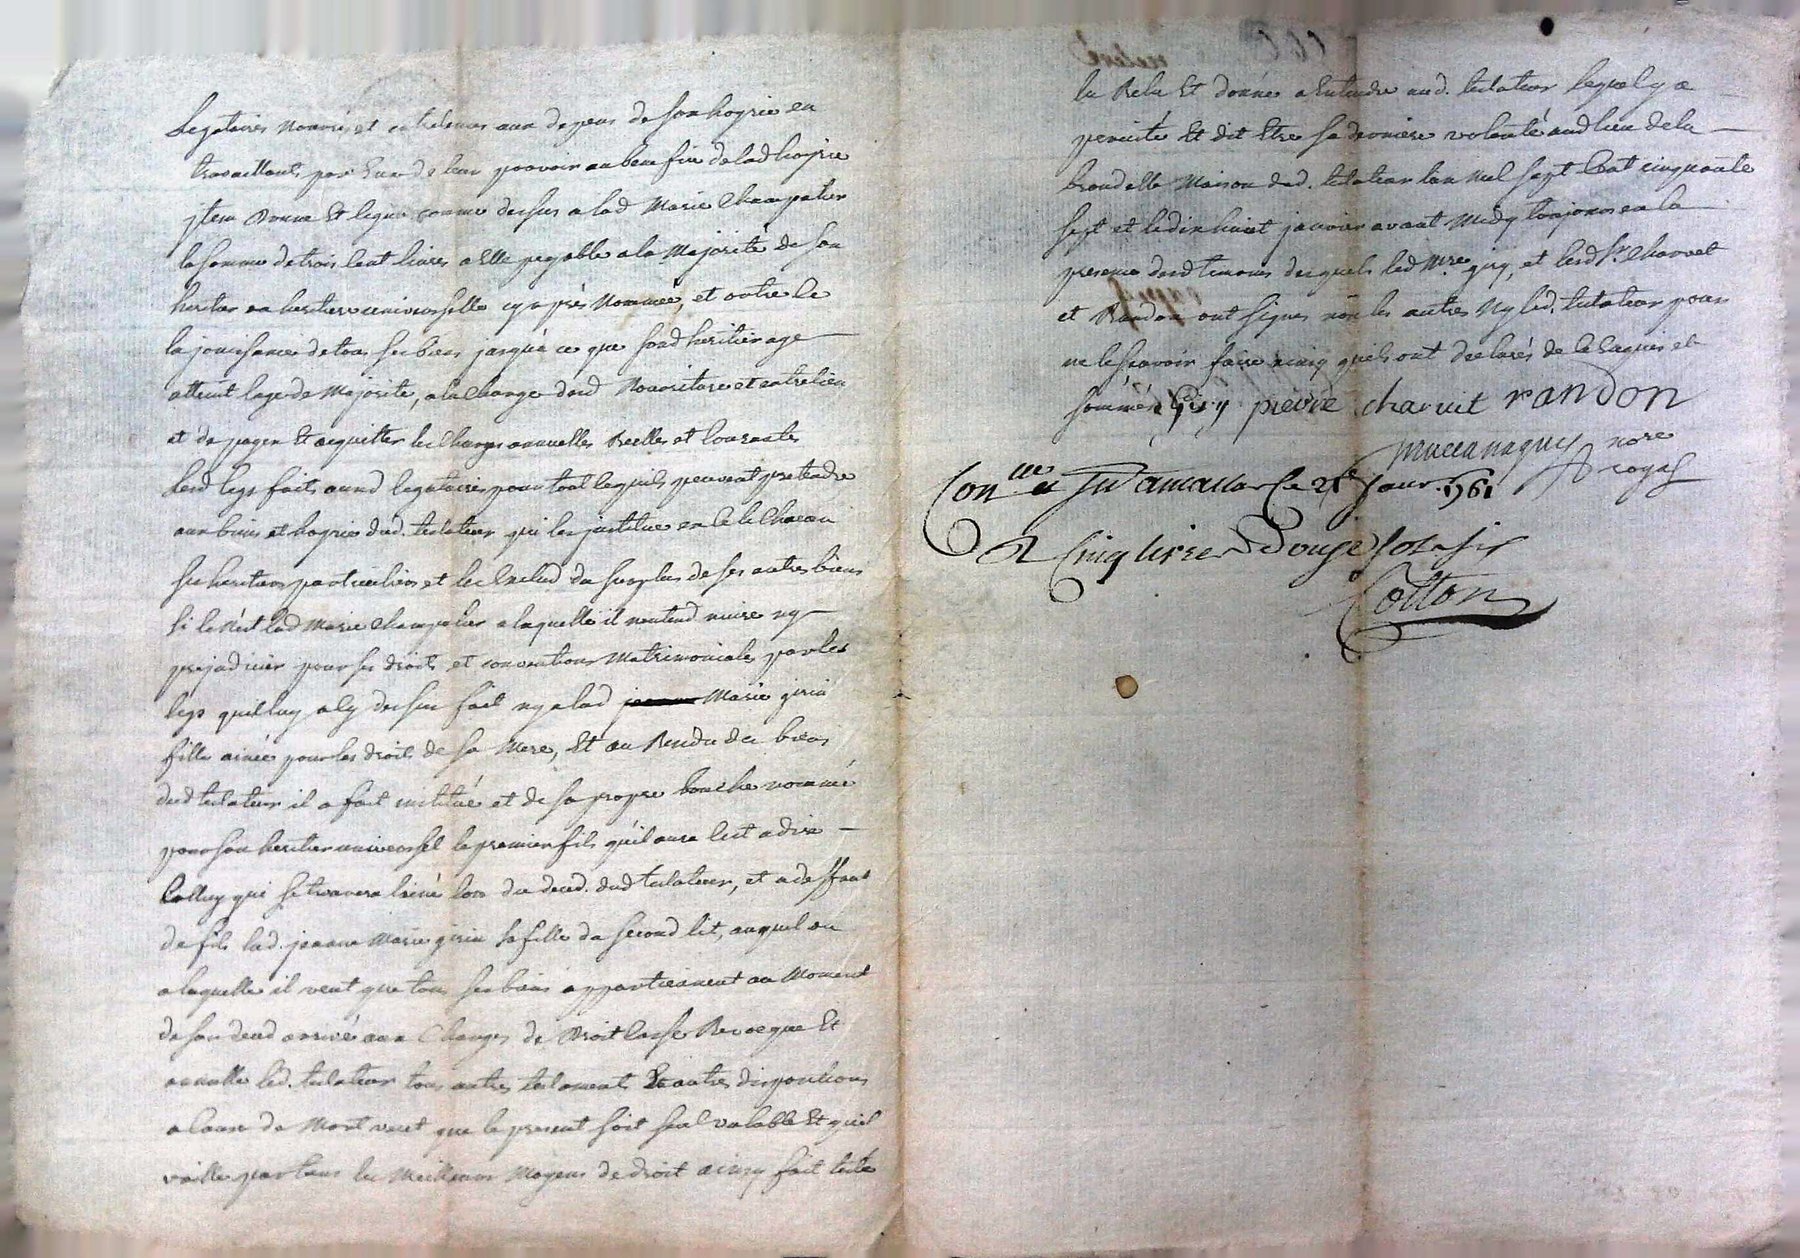 Legataires nourris et entretenus aux depens de son hoyrie en
travaillants par eux de leur pouvoir au benefice de lad hoyrie
jtem Donne Et legue comme dessus a lad Marie Champalier
la somme de trois Cent livres a Elle payable a la Majorité de son
heritier ou heritiere universelle cy aprés Nommée, et outre ce
la jouissance de tous ses biens jusqu'a ce que sond heritier aye
atteint l'age de Majorite, a la Charge desd Nourriture et entretien
et de payer Et acquitter les Charges annuelles Reelles et Courantes
lesd legs faits auxd legataires pour tout ce quils peuvent pretendre
aux biens et hoyrie dud. testateur qui les jnstitue en ce le Chacun
ses heritiers particuliers et les Exclud du surplus de ses autres biens
si ce n'est lad Marie Champalier a laquelle il n'entend nuire ny
prejudicier pour ses droits et conventions Matrimoniales par les
legs quil luy a cy dessus fait ny a lad Marie girin
fille ainée pour les droits de sa Mere, Et au Residu des biens
dud testateur il a fait institué et de sa propre bouche nommé
pour son heritier universel le premier fils qu'il aura C'est a dire
Celluy qui se trouvera l'ainé lors du deced. dud testateur, et a deffaut
de fils lad. jeanne Marie girin sa fille du second lit, auquel ou
a laquelle il veut que tous ses biens appartiennent au Moment
de son deced arrivé aux Charges de Droit Casse Revoque Et
annulle led. testateur tous autres testaments Et autres dispositions
a Cause de Mort veut que le present soit seul valable Et quil
vaille par tous les Meilleurs Moyens de droit ainsy fait testé
lu Relu Et donné a Entendre aud. testateur lequel y a
persisté Et dit Etre sa derniere volonté aud lieu de la
Maison dud. testateur l'an Mil sept Cent cinquante
sept et le dix huit janvier avant Midy toujours en la
presence desd temoins desquels led Mre. giry, et lesd Sr. Charvet
et Randon ont signés non les autres Ny led. testateur pour
ne le scavoir faire ainsy quils ont declarés de ce Enquis et
sommés Giry pretre charvit randon
nore
royal
Con.lle a St amana Ce 21e Janr. 1761
R Cinq livres Douze sols six
Cotton